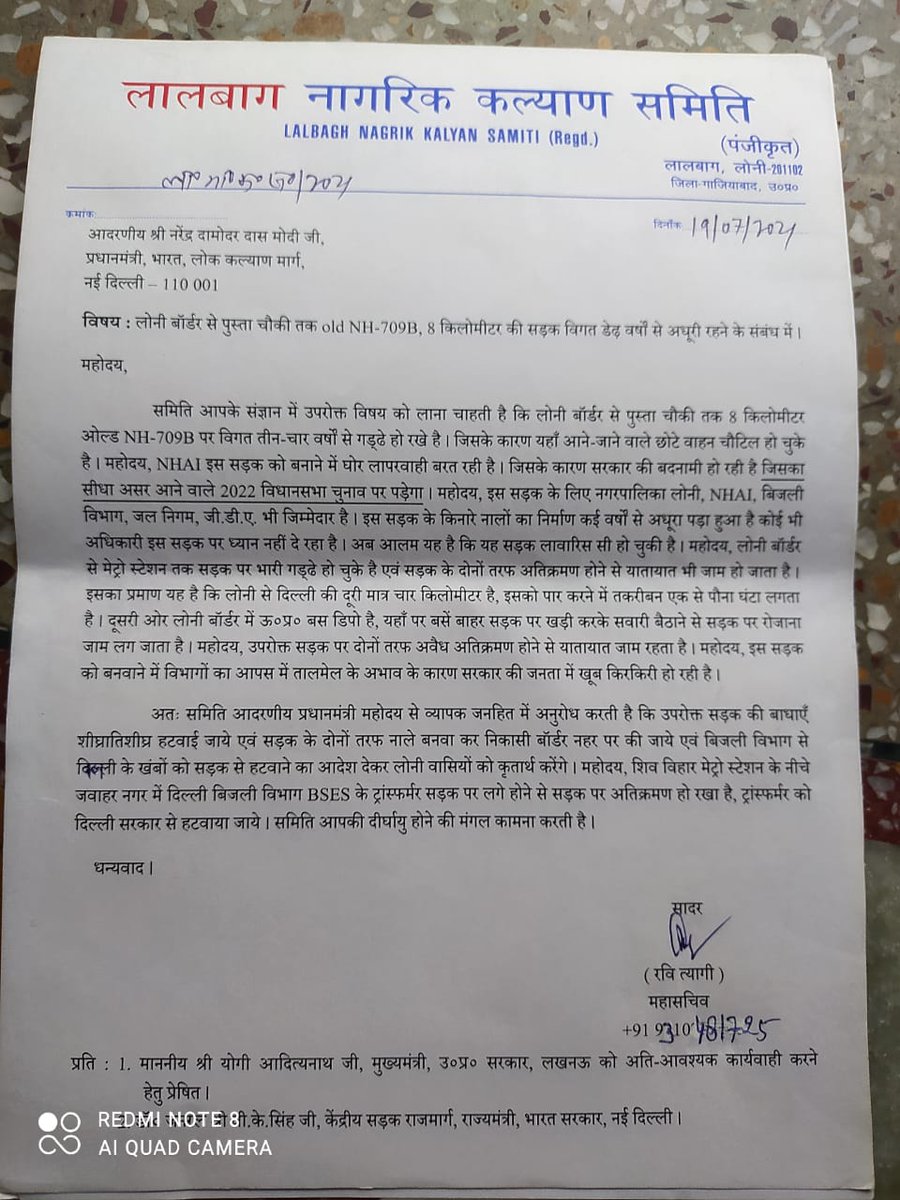 लालबाग नागरिक कल्याण समिति
LALBAGH NAGRIK KALYAN SAMITI (Regd.)
(पंजीकृत)
लालबाग, लोनी-201102
जिला-गाजियाबाद, उ०प्र०
क्रमांक
दिनाँक 19/07/2021
आदरणीय श्री नरेंद्र दामोदर दास मोदी जी,
प्रधानमंत्री, भारत, लोक कल्याण मार्ग,
नई दिल्ली – 110 001
विषय : लोनी बॉर्डर से पुस्ता चौकी तक old NH-709B, 8 किलोमीटर की सड़क विगत डेढ़ वर्षों से अधूरी रहने के संबंध में।
महोदय,
समिति आपके संज्ञान में उपरोक्त विषय को लाना चाहती है कि लोनी बॉर्डर से पुस्ता चौकी तक 8 किलोमीटर
ओल्ड NH-709B पर विगत तीन-चार वर्षों से गड्ढे हो रखे है। जिसके कारण यहाँ आने-जाने वाले छोटे वाहन चौटिल हो चुके
है। महोदय, NHAI इस सड़क को बनाने में घोर लापरवाही बरत रही है। जिसके कारण सरकार की बदनामी हो रही है जिसका
सीधा असर आने वाले 2022 विधानसभा चुनाव पर पड़ेगा। महोदय, इस सड़क के लिए नगरपालिका लोनी, NHAI, बिजली
विभाग, जल निगम, जी.डी.ए. भी जिम्मेदार है। इस सड़क के किनारे नालों का निर्माण कई वर्षो से अधूरा पड़ा हुआ है कोई भी
अधिकारी इस सड़क पर ध्यान नहीं दे रहा है। अब आलम यह है कि यह सड़क लावारिस सी हो चुकी है। महोदय, लोनी बॉर्डर
से मेट्रो स्टेशन तक सड़क पर भारी गड्ढे हो चुके है एवं सड़क के दोनों तरफ अतिक्रमण होने से यातायात भी जाम हो जाता है।
इसका प्रमाण यह है कि लोनी से दिल्ली की दूरी मात्र चार किलोमीटर है, इसको पार करने में तकरीबन एक से पौना घंटा लगता
है। दूसरी ओर लोनी बॉर्डर में ऊ०प्र० बस डिपो है, यहाँ पर बसें बाहर सड़क पर खड़ी करके सवारी बैठाने से सड़क पर रोजाना
जाम लग जाता है। महोदय, उपरोक्त सड़क पर दोनों तरफ अवैध अतिक्रमण होने से यातायात जाम रहता है। महोदय, इस सड़क
को बनवाने में विभागों का आपस में तालमेल के अभाव के कारण सरकार की जनता में खूब किरकिरी हो रही है।
अतः समिति आदरणीय प्रधानमंत्री महोदय से व्यापक जनहित में अनुरोध करती है कि उपरोक्त सड़क की बाधाएँ
शीघ्रातिशीघ्र हटवाई जाये एवं सड़क के दोनों तरफ नाले बनवा कर निकासी बॉर्डर नहर पर की जाये एवं बिजली विभाग से
के खंबों को सड़क से हटवाने का आदेश देकर लोनी वासियों को कृतार्थ करेंगे। महोदय, शिव विहार मेट्रो स्टेशन के नीचे
जवाहर नगर में दिल्ली बिजली विभाग BSES के ट्रांस्फर्मर सड़क पर लगे होने से सड़क पर अतिक्रमण हो रखा है, ट्रांस्फर्मर को
दिल्ली सरकार से हटवाया जाये। समिति आपकी दीर्घायु होने की मंगल कामना करती है।
धन्यवाद।
सादर
( रवि त्यागी )
महासचिव
+91
प्रति : 1. माननीय श्री योगी आदित्यनाथ जी, मुख्यमंत्री, उ०प्र० सरकार, लखनऊ को अति-आवश्यक कार्यवाही करने
हेतु प्रेषित।
वी.के.सिंह जी, केंद्रीय सड़क राजमार्ग, राज्यमंत्री, भारत सरकार, नई दिल्ली।
REDMI NOTE 8
AI QUAD CAMERA